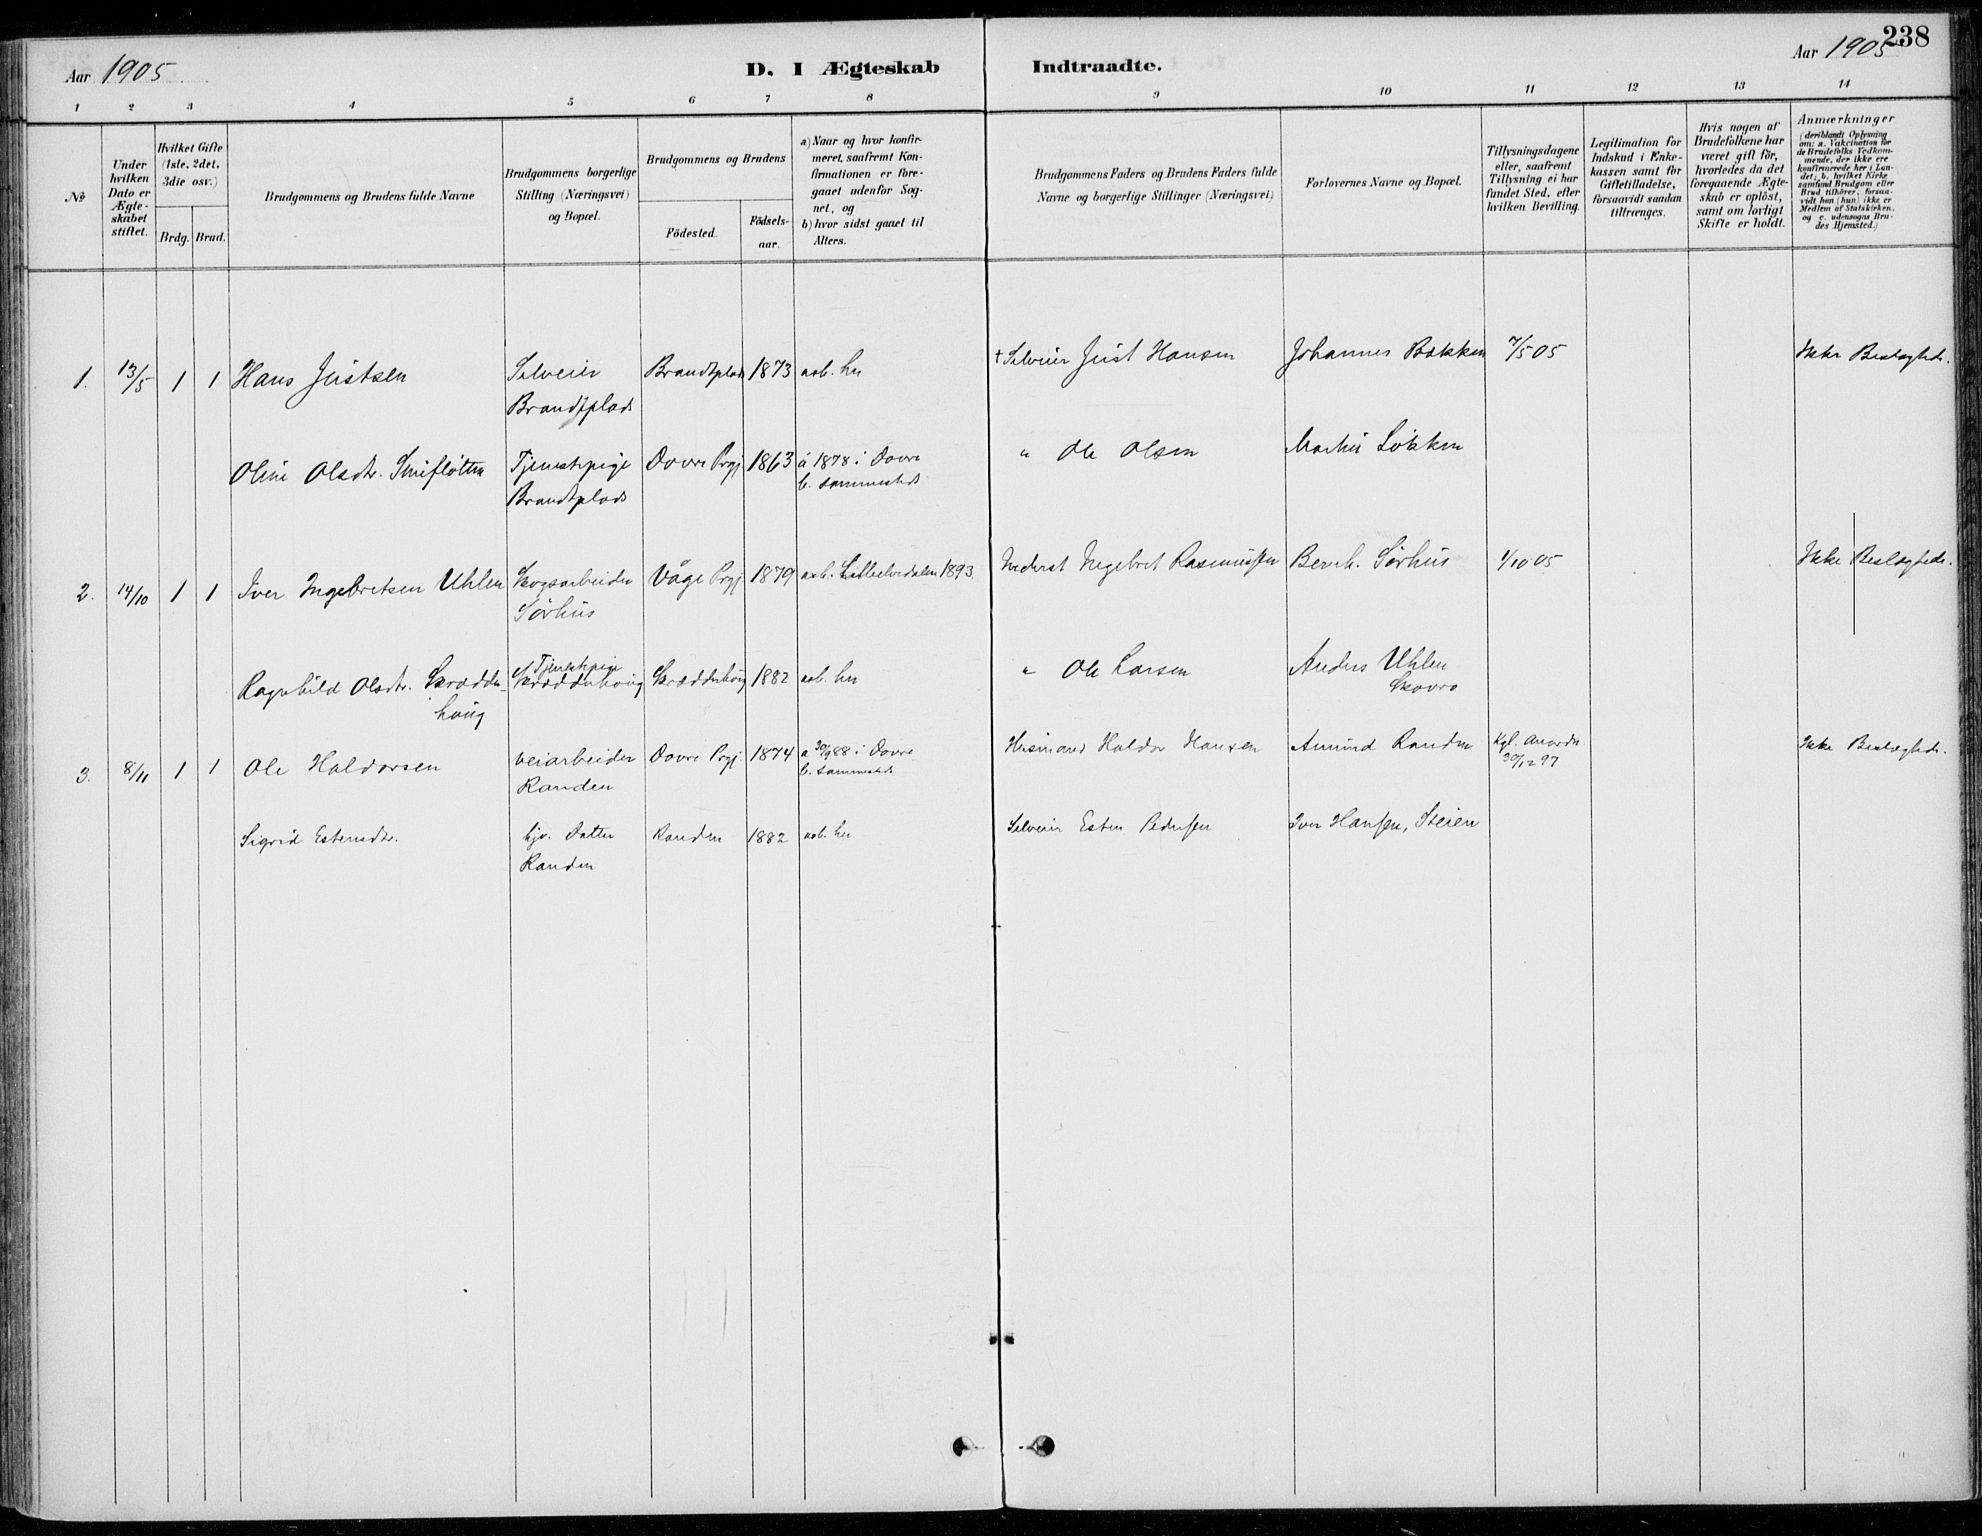 238
Aar 1905
D. I Ægteskab Indtraadte.
Aar 1905
1 2 3 4 5 6 7 8 9 10 11 12 13 14
No
Under hvilken Dato er Ægteskabet stiftet.
Hvilket Gifte (1ste, 2det, 3die osv.)
Brdg. Brud.
Brudgommens og Brudens fulde Navne
Brudgommens borgerlige Stilling (Næringsvei) og Bopæl.
Brudgommens og Brudens
Födested.
Födsels-aar.
a) Naar og hvor konfirmeret, saafremt Konfirmationen er foregaaet udenfor Sognet, og
b) hvor sidst gaaet til Alters.
Brudgommens Faders og Brudens Faders fulde Navne og borgerlige Stillinger (Næringsvei)
Forlovernes Navne og Bopæl.
Tillysningsdagene eller, saafremt Tillysning ei har fundet Sted, efter hvilken Bevilling.
Legitimation for Indskud i Enkekassen samt for Giftetilladelse, forsaavidt saadan tiltrænges.
Hvis nogen af Brudefolkene har været gift för, hvorledes da det foregaaende Ægteskab er oplöst, samt om lovligt Skifte er holdt.
Anmærkninger
(deriblandt Oplysning om: a. Vakcination for de Brudefolks Vedkommende, der ikke ere konfirmerede her i Landet; b. hvilket Kirkesamfund Brudgom eller Brud tilhörer, forsaavidt han (hun) ikke er Medlem af Statskirken, og c. udensogns Brudes Hjemsted.)
1. 13/5 1 1 Hans Justsen Selveier Brandtplads 1873 aob. her + Selveier Just Hansen Johannes Bakken 7/5 05 Ikke Beslægtede.
Brandtplads
Oline Olsdtr. Tjenestepige Dovre Prgj. 1863 a 1878 i Dovre " Ole Olsen Løkken
Brandtplads b. sammesteds
2. 14/10 1 1 Iver Ingebretsen Uhlen Skogsarbeider Våge Prgj. 1879 aob. Lilleelvedalen 1893. Inderst Ingebret Rasmussen Bernh. Sørhus 1/10 05 Ikke Beslægtede.
Sørhus
Ragnhild Olsdtr. Skrædder- Tjenestepige Skrædderhoug 1882 aob. her " Ole Larsen Anders Uhlen
houg Skrædderhoug Skovro
3. 8/11 1 1 Ole Haldorsen veiarbeider Dovre Prgj. 1874 a 30/9 88 i Dovre Husmand Haldor Hansen Amund Randen Kgl. Anordn. Ikke Beslægtede.
Randen b. sammesteds 30/12 97
Sigrid Estensdtr. hjv. Datter Randen 1882 aob. her Selveier Esten Pedersen Iver Hansen, Steien
Randen